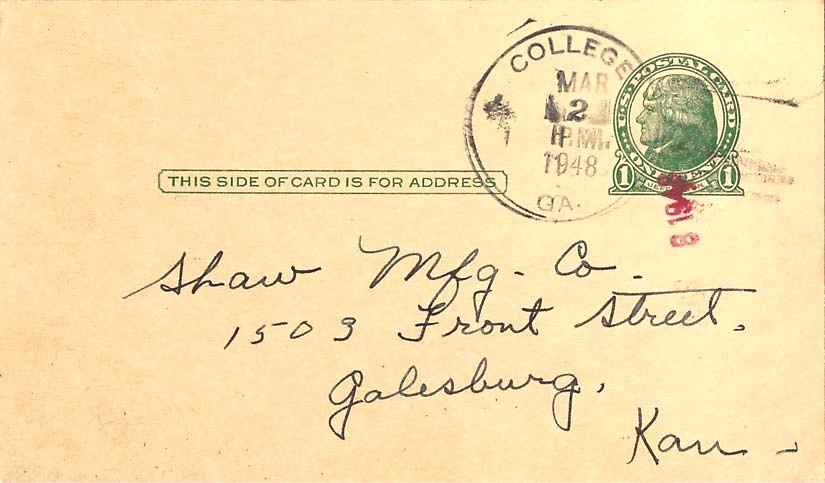 COLLEGE
MAR
2
P.M.
1948
GA.
U.S. POSTAL CARD
ONE CENT
1 1
THIS SIDE OF CARD IS FOR ADDRESS
Shaw Mfg. Co.
1503 Front Street.
Galesburg,
Kan